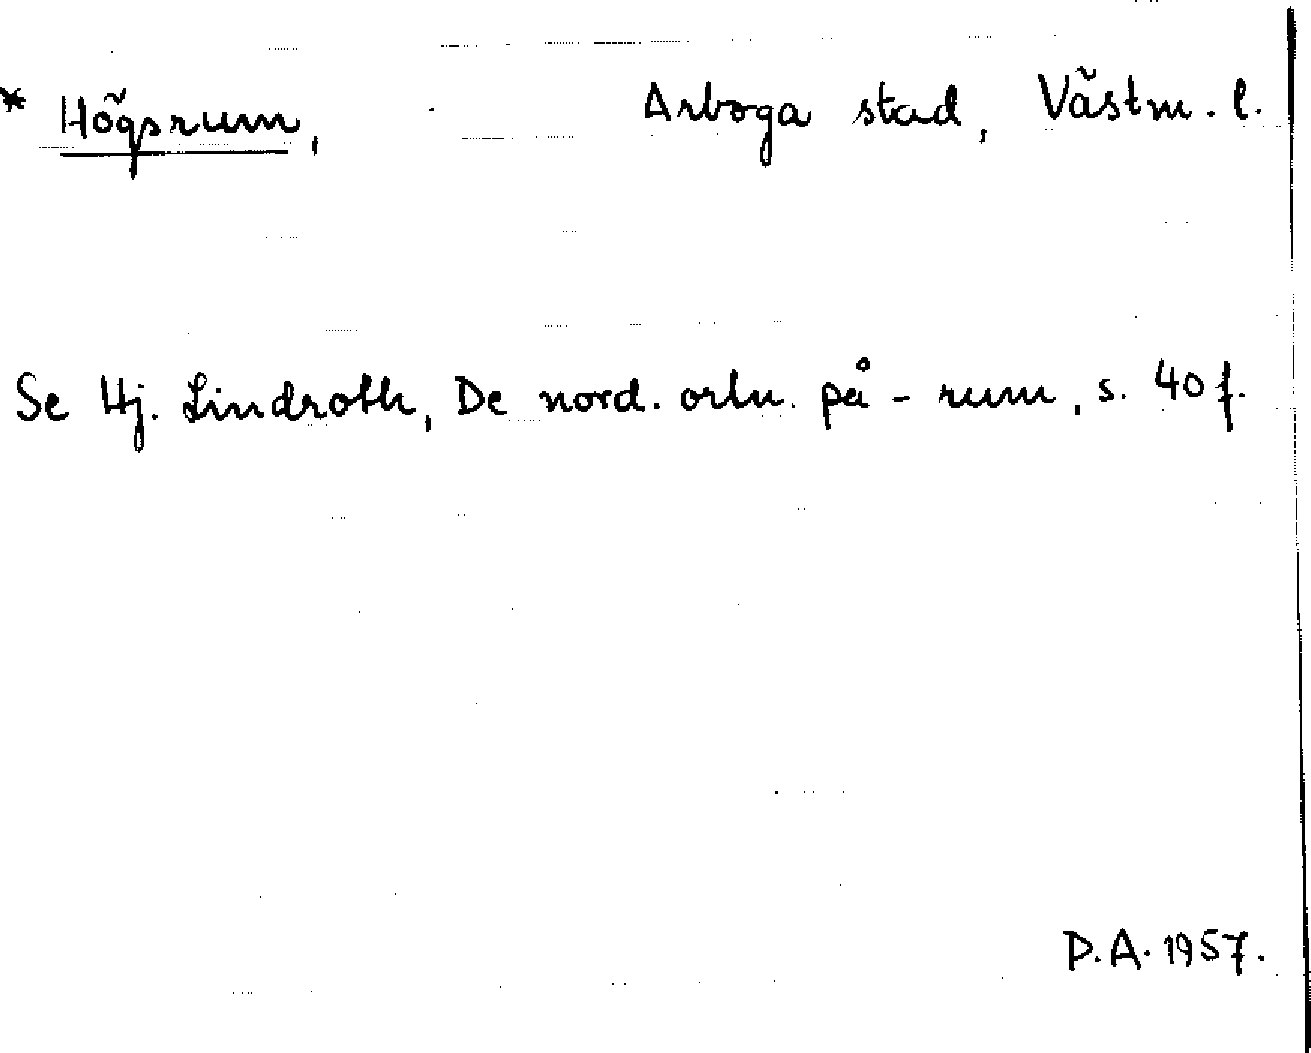 * Högsrum, Arboga stad, Västm. l.
Se Hj. Lindroth, De nord. ortn. på - rum, s. 40 f.
D.A. 1957.